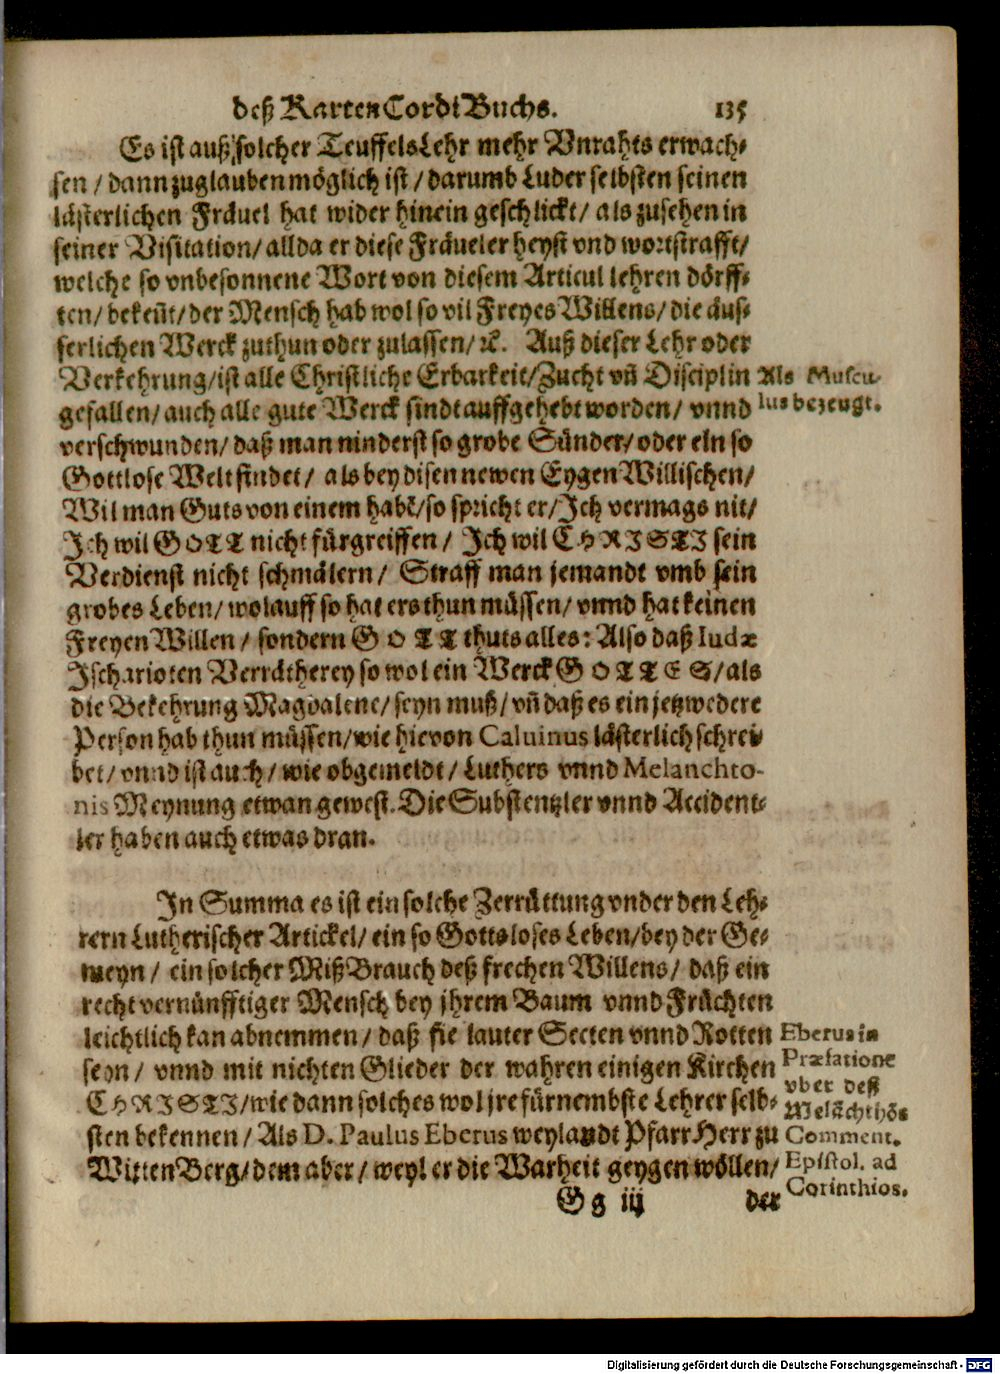 deß KartenCordi Buchs. 135
Es ist auß solcher TeuffelsLehr mehr Vnrahts erwach-
sen / dann zuglauben möglich ist / darumb Luder selbsten seinen
lästerlichen Fräuel hat wider hinein geschlickt / als zusehen in
seiner Visitation / allda er diese Fräueler heyst vnd wortstrafft /
welche so vnbesonnene Wort von diesem Articul lehren dörff-
ten / bekeñt / der Mensch hab wol so vil Freyes Willens / die äus-
serlichen Werck zuthun oder zulassen / ꝛc. Auß dieser Lehr oder
Verkehrung / ist alle Christliche Erbarkeit / Zucht vñ Disciplin
gefallen / auch alle gute Werck sindt auffgehebt worden / vnnd
Als Muscu-
lus bezeugt.
verschwunden / daß man ninderst so grobe Sünder / oder ein so
Gottlose Welt findet / als bey disen newen EygenWillischen /
Wil man Guts von einem habē / so spricht er / Ich vermags nit /
Ich wil GOTT nicht fürgreiffen / Ich wil CHRISTI sein
Verdienst nicht schmälern / Straff man jemandt vmb sein
grobes Leben / wolauff so hat ers thun müssen / vnnd hat keinen
Freyen Willen / sondern GOTT thuts alles: Also daß Iudæ
Ischarioten Verrätherey so wol ein Werck GOTTES / als
die Bekehrung Magdalene / seyn muß / vñ daß es ein jetzwedere
Person hab thun müssen / wie hievon Caluinus lästerlich schrei-
bet / vnnd ist auch / wie obgemeldt / Luthers vnnd Melanchto-
nis Meynung etwan gewest. Die Substentzler vnnd Accident-
ler haben auch etwas dran.
In Summa es ist ein solche Zerrüttung vnder den Leh-
rern Lutherischer Artickel / ein so Gottsloses Leben / bey der Ge-
meyn / ein solcher MißBrauch deß frechen Willens / daß ein
recht vernünfftiger Mensch bey jhrem Baum vnnd Früchten
leichtlich kan abnemmen / daß sie lauter Secten vnnd Rotten
seyn / vnnd mit nichten Glieder der wahren einigen Kirchen
CHRISTI / wie dann solches wol jre fürnembste Lehrer selb-
sten bekennen / Als D. Paulus Eberus weylandt PfarrHerr zu
WittenBerg / dem aber / weyl er die Warheit geygen wöllen /
Eberus in
Præfatione
vber deß
Melāchthōs
Comment.
Epistol. ad
Corinthios.
Gg iij der
Digitalisierung gefördert durch die Deutsche Forschungsgemeinschaft - DFG